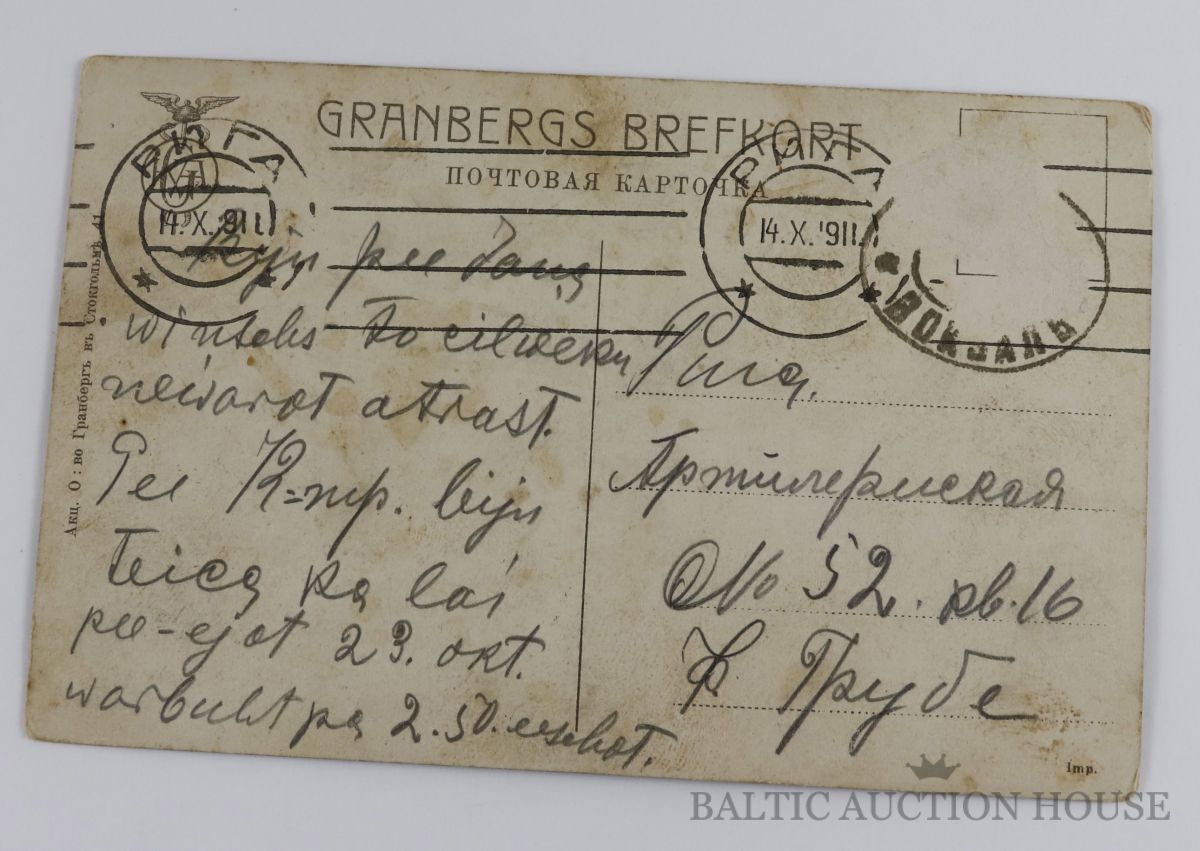 GRANBERGS BREFKORT
ПОЧТОВАЯ КАРТОЧКА
РИГА
14.X.911
РИГА
14.X.911
ВОКЗАЛЪ
Акц. О: во Гранбергъ въ Стокгольмѣ 41
Biju pee
to cilweku
newarot atrast.
Pee K=mp. biju
teica ka lai
pee-ejot 23. okt.
warbuht pa 2.50.
Рига.
Артилерийская
No 52. кв. 16
Ф. Грубе
Imp.
BALTIC AUCTION HOUSE